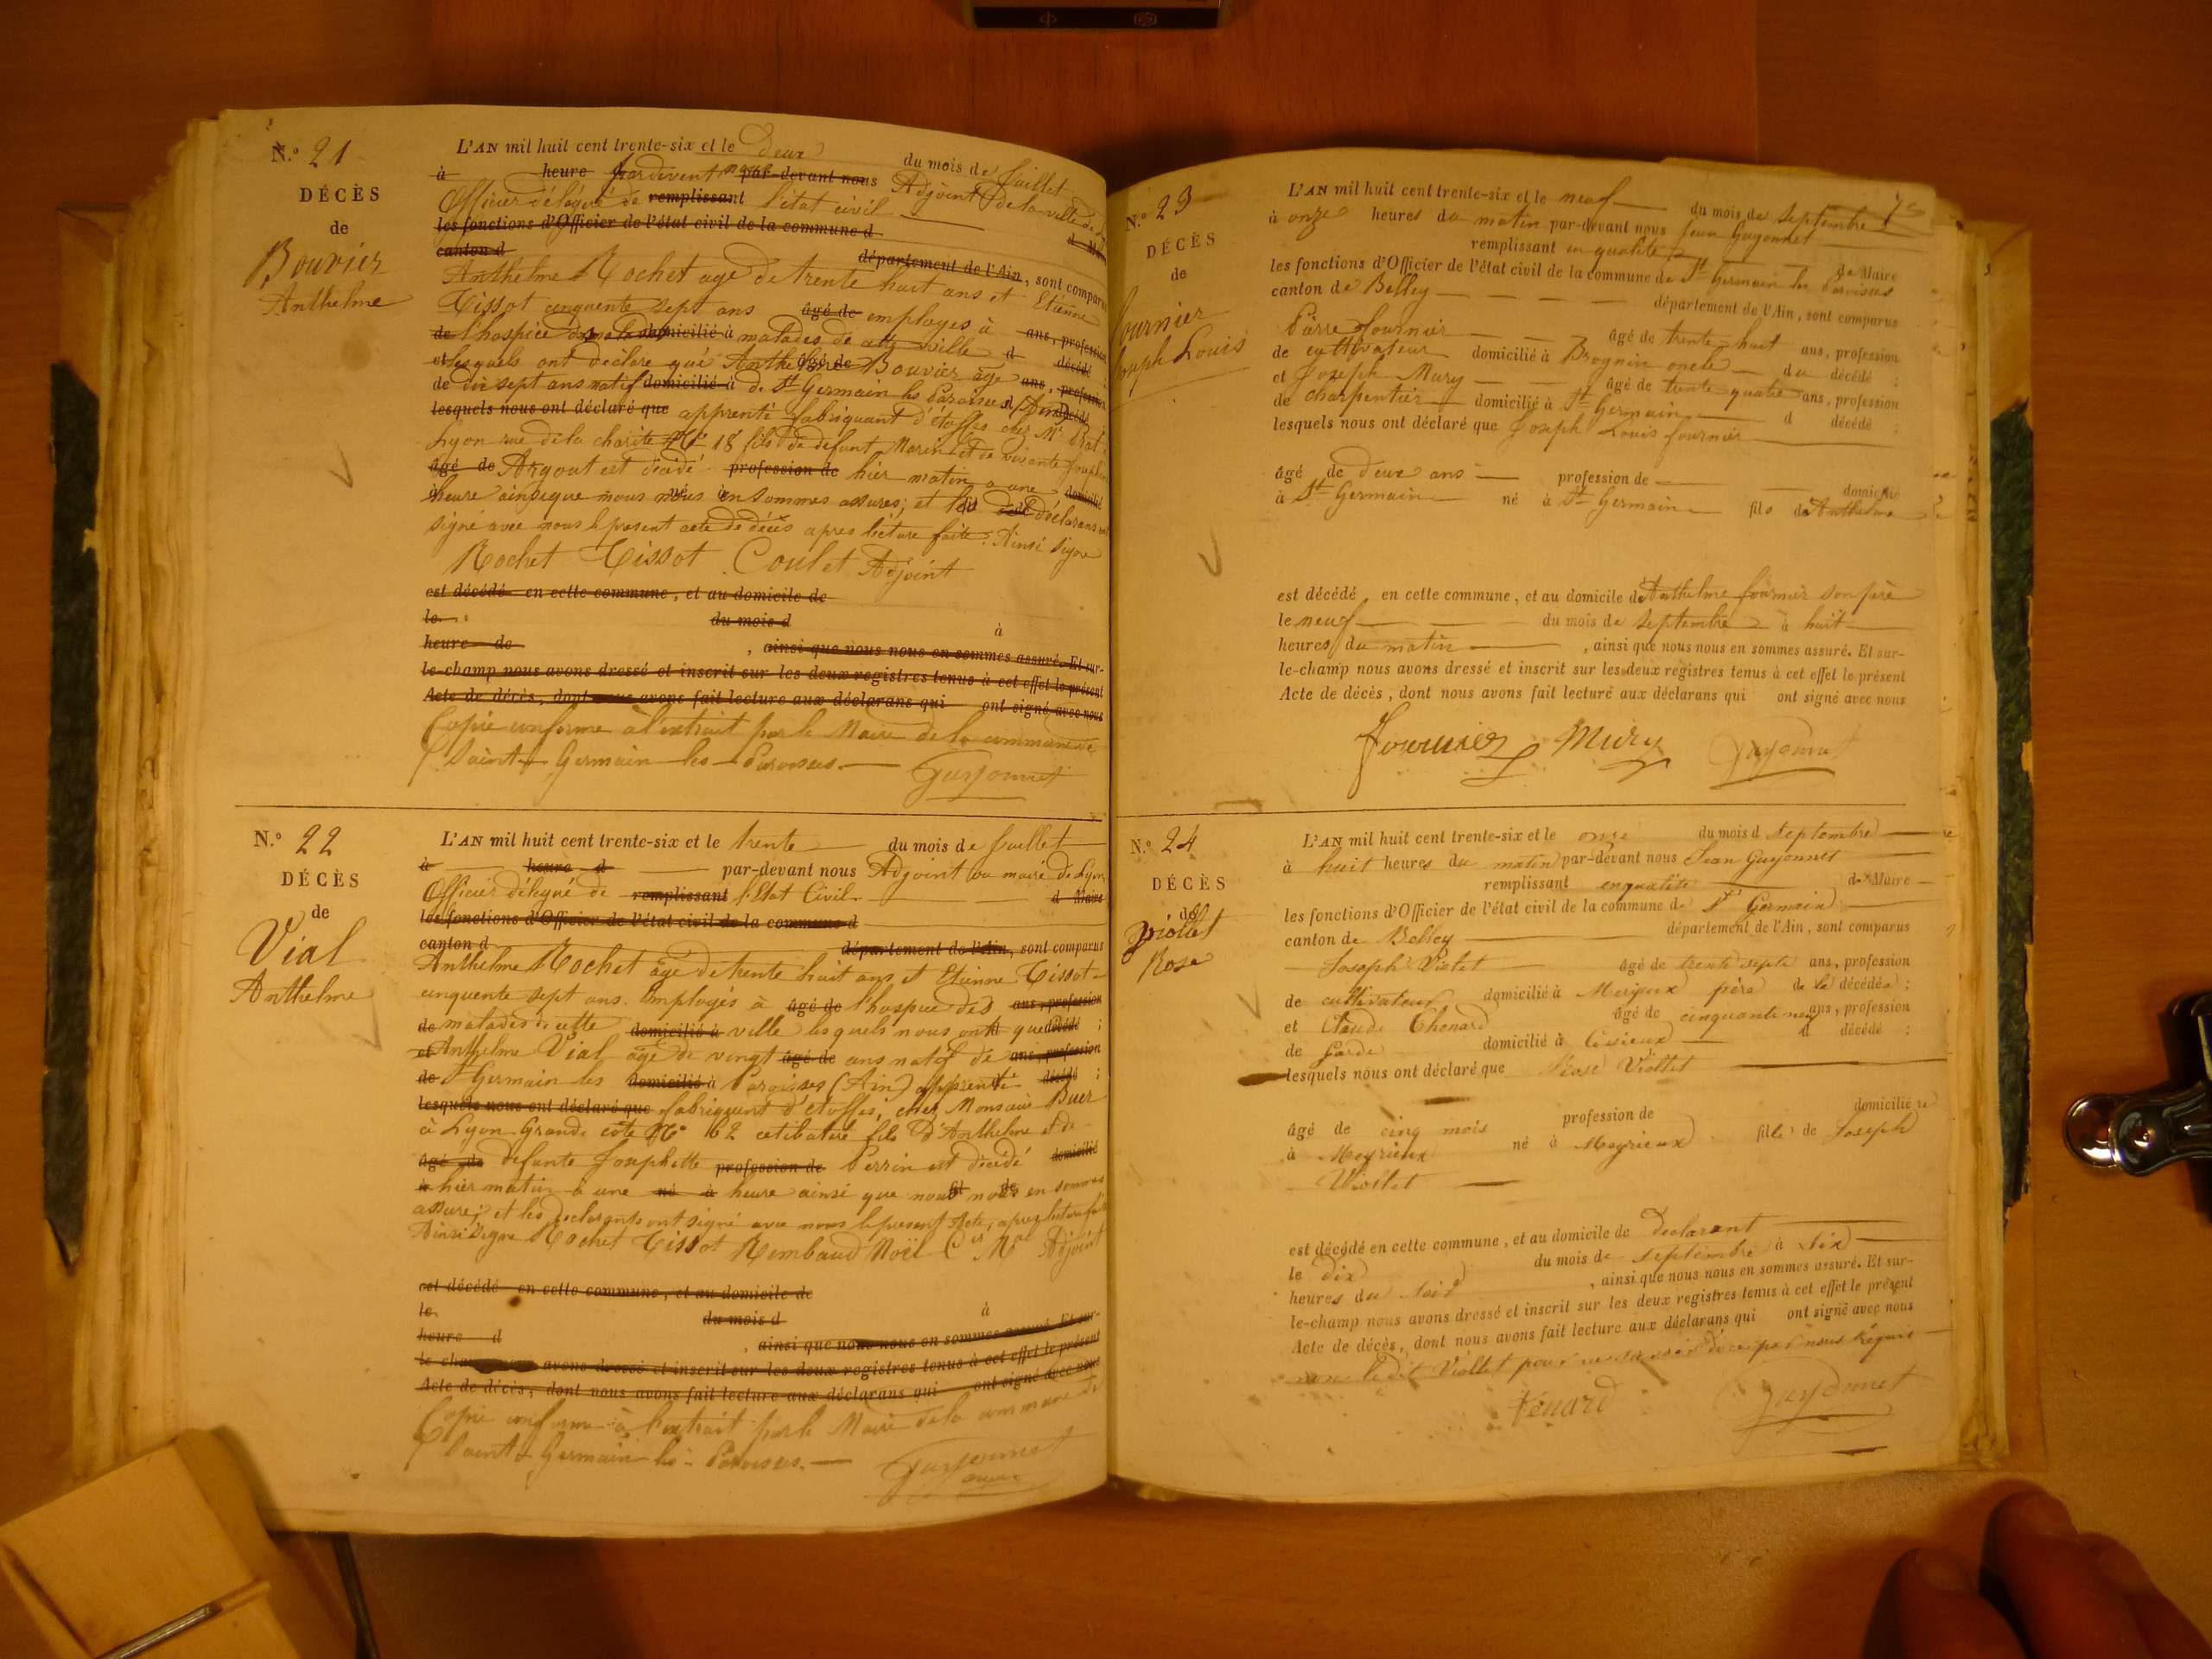 N.° 21
DÉCÈS
de
Bouvier
Anthelme
L'AN mil huit cent trente-six et le deux du mois de Juillet
à heure pardevent nous par-devant nous Adjoint de la ville de
Officier délégué de remplissant l'état civil
les fonctions d'Officier de l'état civil de la commune d
canton d département de l'Ain, sont comparus
Anthelme Rochet age de trente huit ans et Etienne
Tissot cinquente sept ans âgé de employes à ans, profession
de l'hospice domicilié à malades de ville d décédé
et lesquels ont declare que Anthelme âgé de Bouvier âge ans, profession
de dix sept ans natif domicilié à de St Germain les Paroisses (Ain)
lesquels nous ont déclaré que apprenti fabriquant d'étoffes chez Mr Prat
Lyon rue de la charite N° 18 fils de defunt Marin et de
âgé de Argout est décédé profession de hier matin a une domicilié
heure ainsi que nous nous en sommes assures; et les déclarans ont
signé avec nous le present acte de décès apres lecture faite. Ainsi signé
Rochet Tissot Coulet Adjoint
est décédé en cette commune, et au domicile de
le du mois d à
heure de , ainsi que nous nous en sommes assuré. Et sur-
le-champ nous avons dressé et inscrit sur les deux registres tenus à cet effet le présent
Acte de décès, dont nous avons fait lecture aux déclarans qui ont signé avec nous
Copie conforme à l'extrait par le Maire de la commune de
Saint Germain les Paroisses.
Guyonnet
N.° 22
DÉCÈS
de
Vial
Anthelme
L'AN mil huit cent trente-six et le trente du mois de Juillet
à heure d par-devant nous Adjoint au maire de Lyon
Officier délégué de remplissant l'Etat Civil. d Maire
les fonctions d'Officier de l'état civil de la commune d
canton d département de l'Ain, sont comparus
Anthelme Rochet âge de trente huit ans et Etienne Tissot
cinquente sept ans. Employés à âgé de l'hospice des ans, profession
de malades de cette domicilié à ville lesquels nous ont que décédé ;
et Anthelme Vial âge de vingt âgé de ans natif de ans, profession
de St Germain les domicilié à Paroisses (Ain) apprenti décédé ;
lesquels nous ont déclaré que fabriquant d'étoffes, chez Monsieur
à Lyon Grande côte N° 162 celibataire fils d'Anthelme et de
âgé de defunte Josephette profession de Perrin est décédé domicilié
à hier matin à une né à heure ainsi que nous nous en sommes
assure; et les déclarants ont signé avec nous le present Acte, apres lecture faite
Ainsi Signe Rochet Tissot Rembaud Noël Adjoint
est décédé en cette commune, et au domicile de
le du mois d à
heure d , ainsi que nous nous en sommes assuré. Et sur-
le-champ nous avons dressé et inscrit sur les deux registres tenus à cet effet le présent
Acte de décès, dont nous avons fait lecture aux déclarans qui ont signé avec nous
Copie conforme à l'extrait par le Maire de la commune de
Saint Germain les Paroisses.
Guyonnet
N.° 23
DÉCÈS
de
fournier
Joseph Louis
L'AN mil huit cent trente-six et le neuf du mois de septembre
à onze heures du matin par-devant nous Jean Guyonnet
remplissant en qualité de Maire
les fonctions d'Officier de l'état civil de la commune de St Germain les Paroisses
canton de Belley département de l'Ain, sont comparus
Pierre fournier âgé de trente-huit ans, profession
de cultivateur domicilié à Brognin oncle du décédé ;
et Joseph Mury âgé de trente quatre ans, profession
de charpentier domicilié à St Germain d décédé ;
lesquels nous ont déclaré que Joseph Louis fournier
âgé de deux ans profession de domicilié
à St Germain né à St Germain fils de Anthelme
est décédé en cette commune, et au domicile de Anthelme fournier son père
le neuf du mois de septembre à huit
heures du matin , ainsi que nous nous en sommes assuré. Et sur-
le-champ nous avons dressé et inscrit sur les deux registres tenus à cet effet le présent
Acte de décès, dont nous avons fait lecture aux déclarans qui ont signé avec nous
Fournier Mury Guyonnet
N.° 24
DÉCÈS
de
Viollet
Rose
L'AN mil huit cent trente-six et le onze du mois d septembre
à huit heures du matin par-devant nous Jean Guyonnet
remplissant en qualité de Maire
les fonctions d'Officier de l'état civil de la commune de St Germain
canton de Belley département de l'Ain, sont comparus
Joseph Violet âgé de trente septe ans, profession
de cultivateur domicilié à Meyrieux père de la décédée ;
et Claude Thenard âgé de cinquante neuf ans, profession
de Garde domicilié à d décédé ;
lesquels nous ont déclaré que Rose Viollet
âgé de cinq mois profession de domicilié
à Meyrieux né à Meyrieux fille de Joseph
Viollet
est décédé en cette commune, et au domicile de declarant
le dix du mois de septembre à dix
heures du soir , ainsi que nous nous en sommes assuré. Et sur-
le-champ nous avons dressé et inscrit sur les deux registres tenus à cet effet le présent
Acte de décès, dont nous avons fait lecture aux déclarans qui ont signé avec nous
non ledit Viollet pour ne savoir de ce par nous requis
Tenard Guyonnet